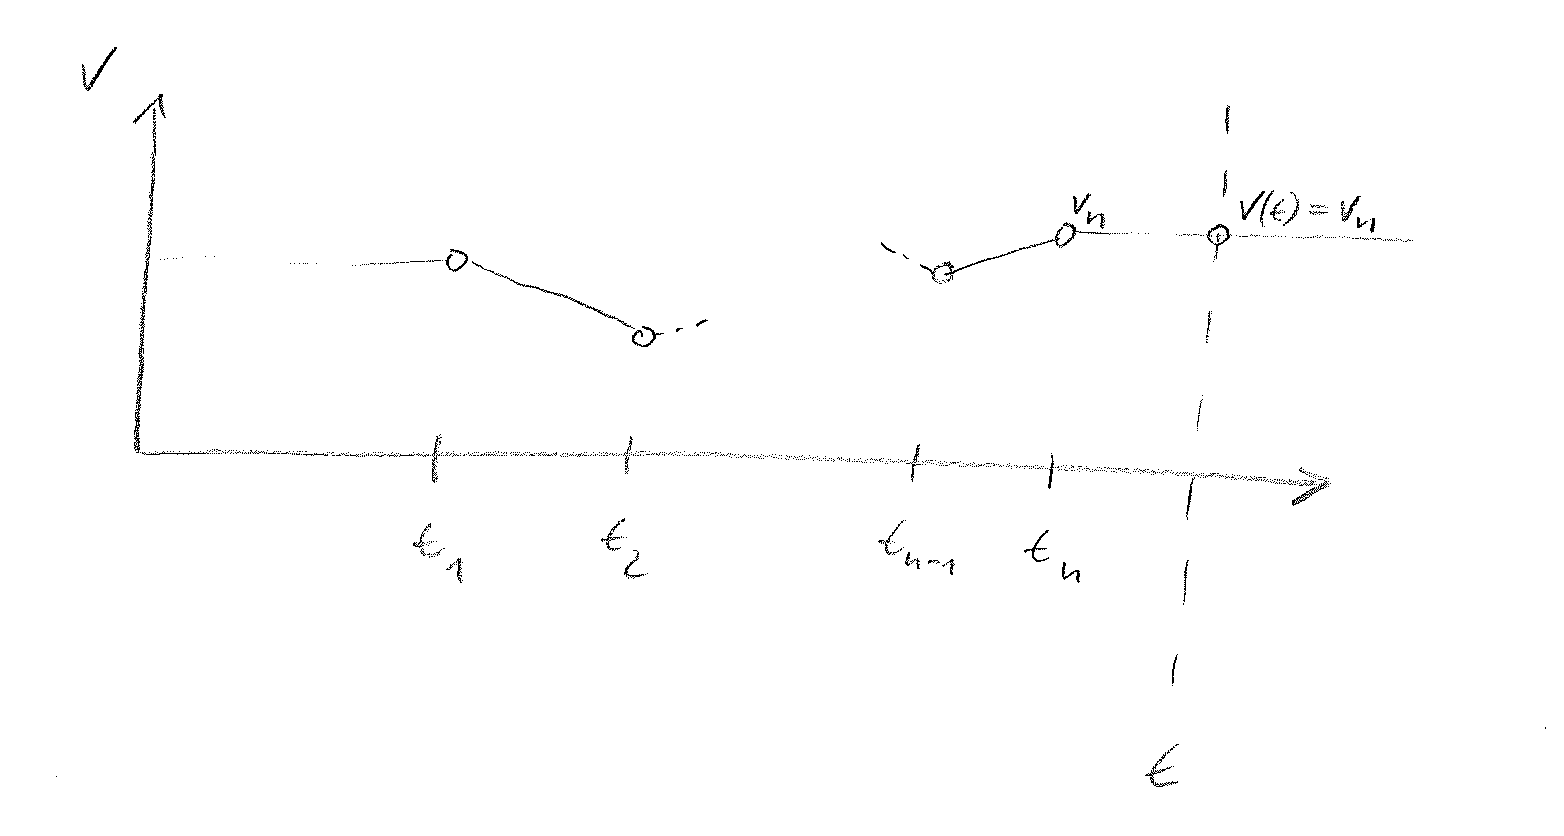 V
vₙ
V(t) = vₙ
t₁
t₂
tₙ₋₁
tₙ
t